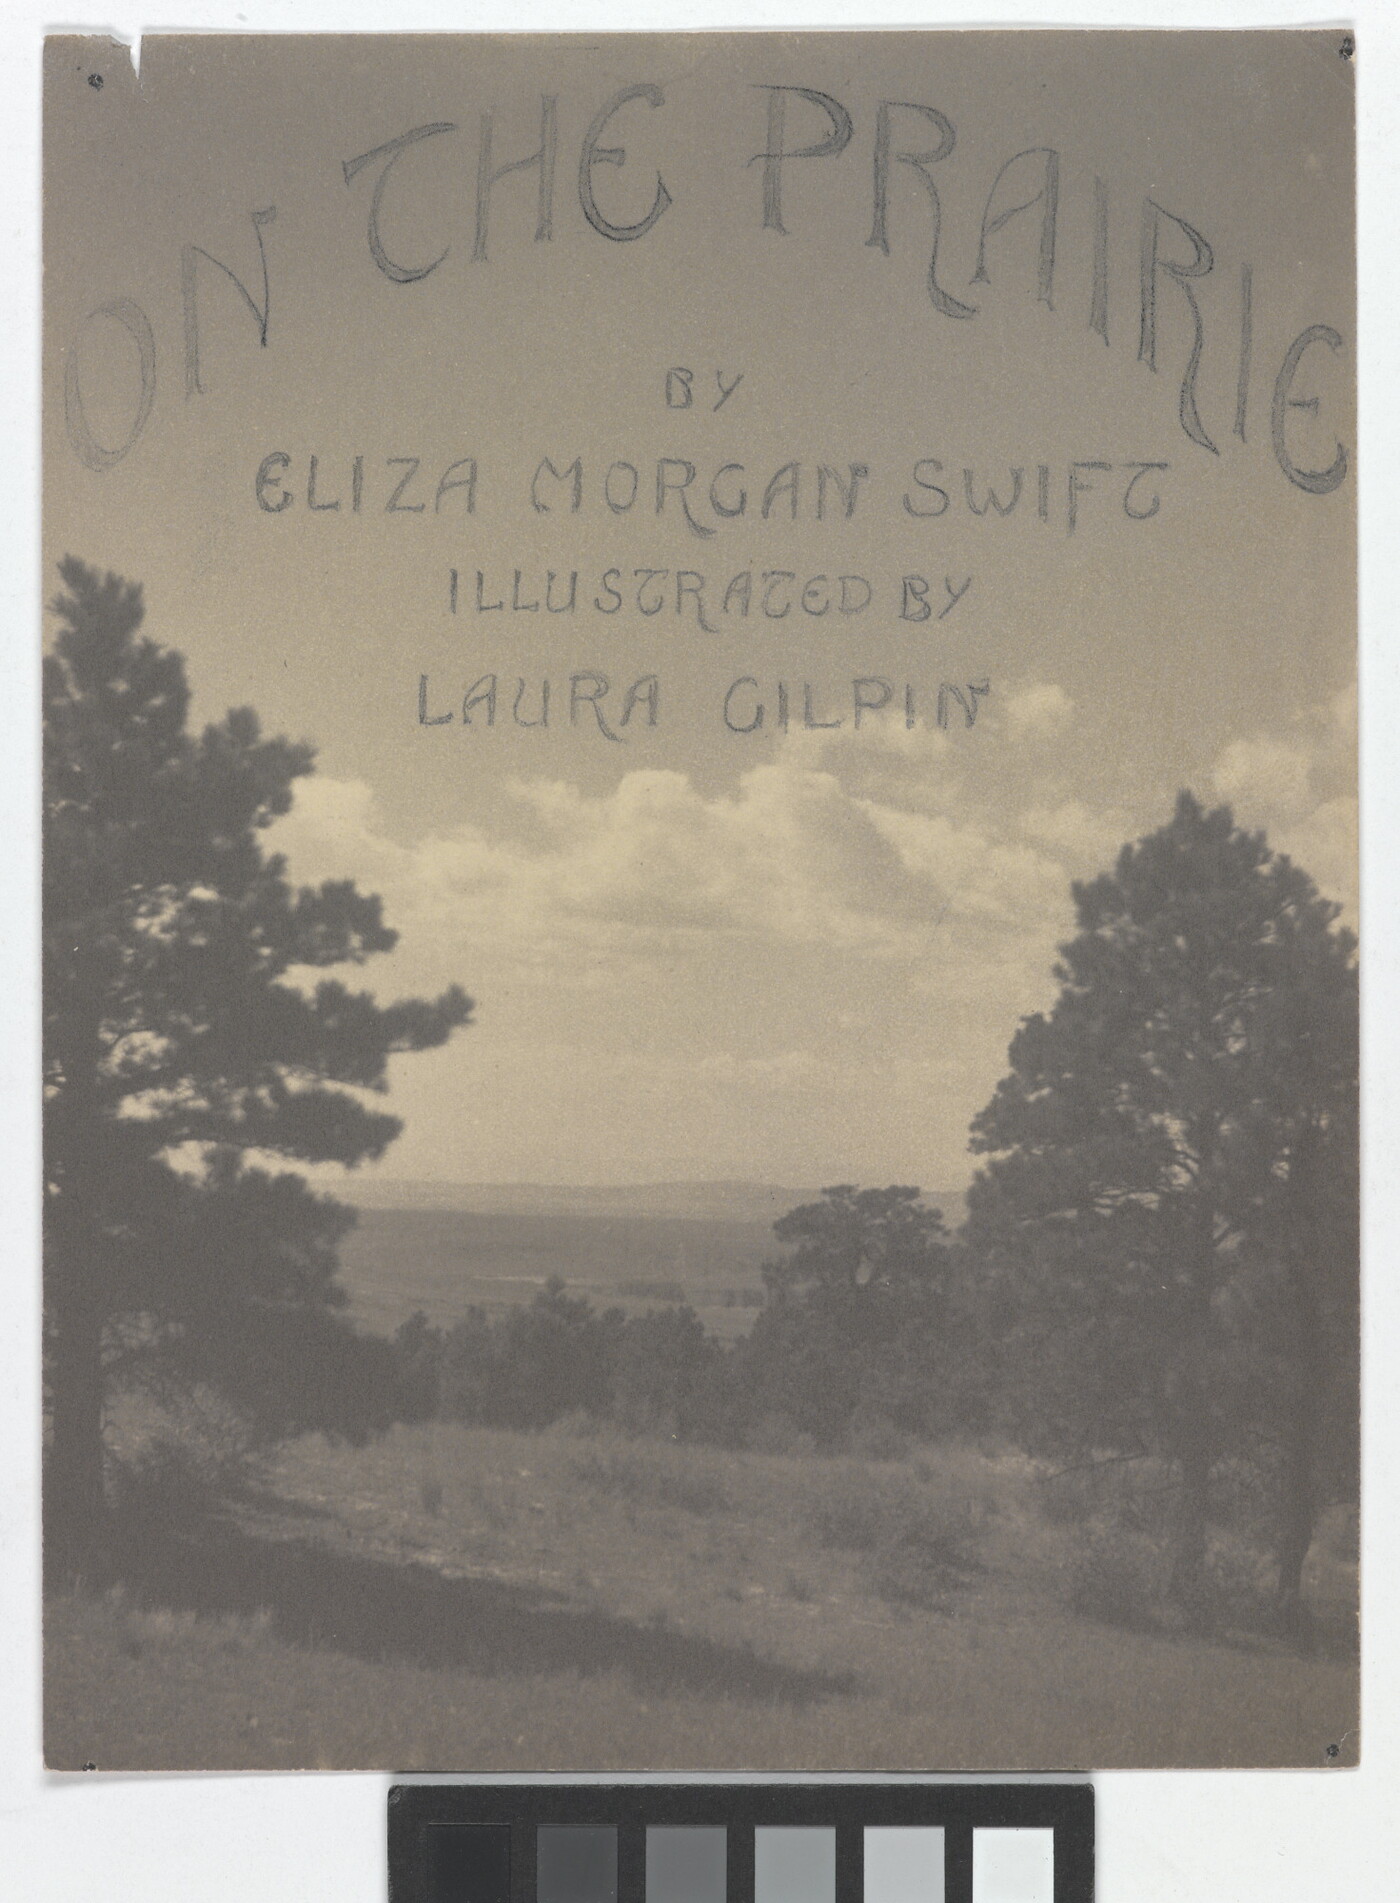 ON THE PRAIRIE
BY
ELIZA MORGAN SWIFT
ILLUSTRATED BY
LAURA GILPIN